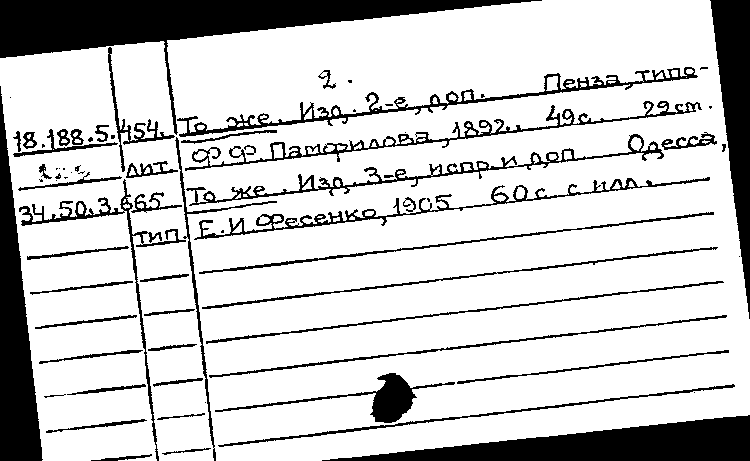 2.
18.188.5.454. То же. Изд. 2-е, доп. Пенза, типо-
лит. Ф.Ф. Памфилова, 1892. 49с. 22см.
34.50.3.665 То же. Изд. 3-е, испр. и доп Одесса,
тип. Е.И. Фесенко, 1905. 60с. с илл.